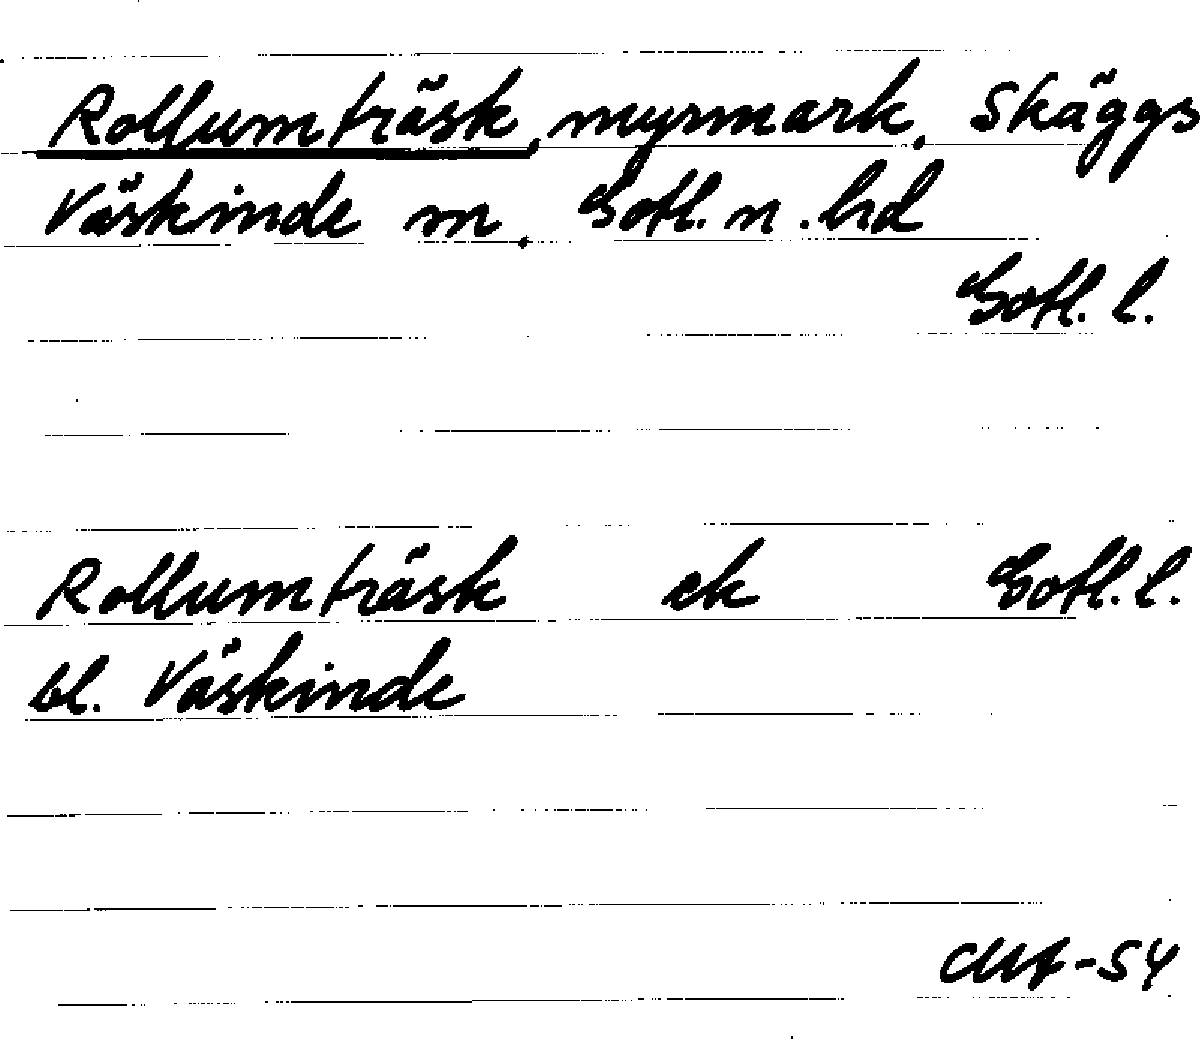 Rollumträsk, myrmark, Skäggs
Väskinde m. Gotl. n. hd
Gotl. l.
Rollumträsk ek Gotl. l.
bl. Väskinde
-54